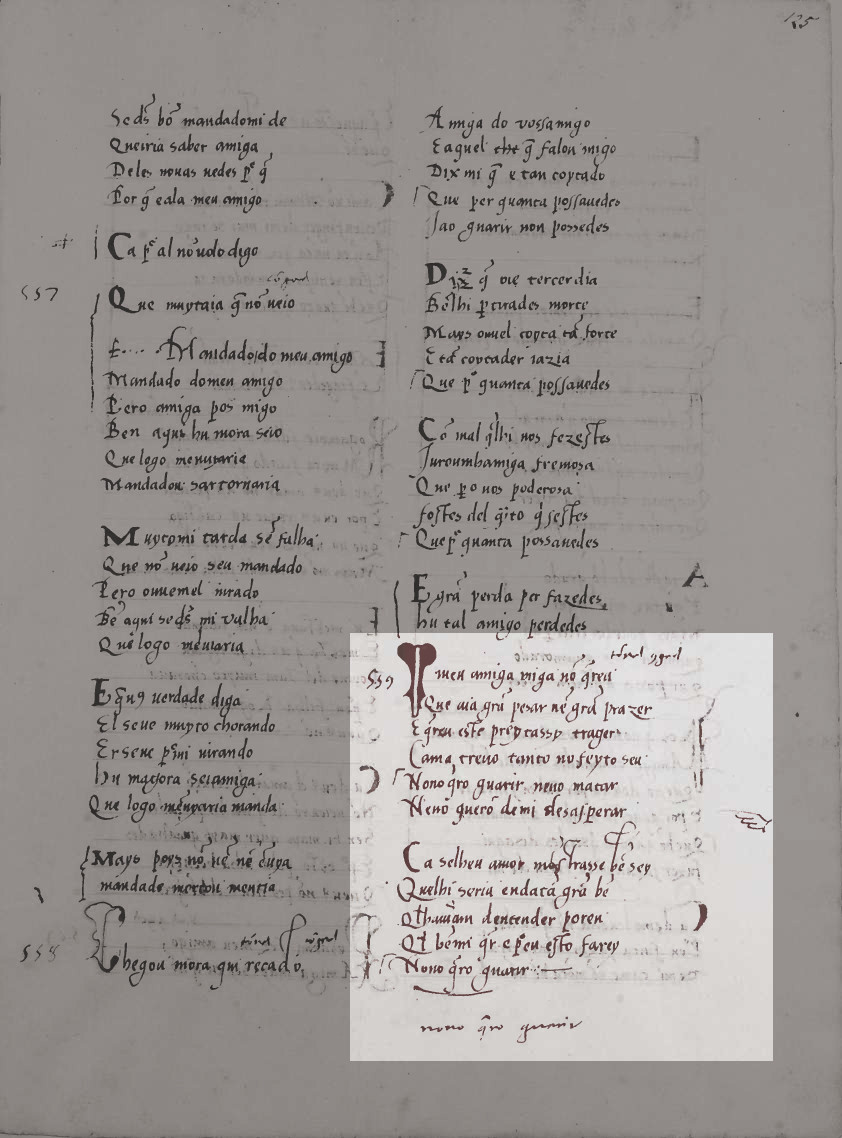 125
Se ds̃ bõ mandadomi de
Queiria saber amiga
Deles nouas uedes p̃ q̃
Por q̃ eala meu amigo
Ca p̃ al nõ uolo digo
557
Que muytaia q̃ nõ ueio
Mandado do meu amigo
Mandado domeu amigo
Pero amiga pos migo
Ben aqui hu mora seio
Que logo menuiaria
Mandadou sar tornaria
Muytomi tarda sẽ falha
Que nõ ueio seu mandado
Pero ouuemel iurado
Bẽ aqui se ds̃ mi valha
Que logo
E q̃ uꝯ uerdade diga
El seue muyto chorando
Er seue p̃ mi iurando
hu magora sei amiga
Que logo menuiaria manda
Mays poys nõ uẽ nẽ enuya
mandade mentia
558
Chegou mora qui recado
Amiga do vossamigo
Eaquel che q̃ falou migo
Dix mi q̃ e tan coytado
Que per quanta possauedes
Ja o guarir non possedes
Diz q̃ oie tercer dia
Bẽ lhi ꝑtirades morte
Mays ouuel coyta tã forte
E tã coytader iazia
Que p̃ quanta possauedes
Cõ mal q̃ lhi uos fezestes
Jurou mhamiga fremosa
Que ꝑo uos poderosa
fostes del q̃ito q̃sestes
Que p̃ quanta possauedes
E grã perda per fazedes
hu tal amigo perdedes
A
559
meu amiga miga nõ q̃reu
Que aia grã pesar nẽ grã prazer
E q̃reu este preyt assy trager
Ca matreuo tanto no feyto seu
Nono q̃ro guarir neno matar
Neno querõ demi desasperar
Ca se lheu amor mostrasse bẽ sey
Que lhi seria endatã grã bẽ
Q̃ lhauiam dentender poren
Q̃ bẽ mi q̃r e p̃ eu esto farey
Nono q̃ro guarir
nono q̃ro guarir